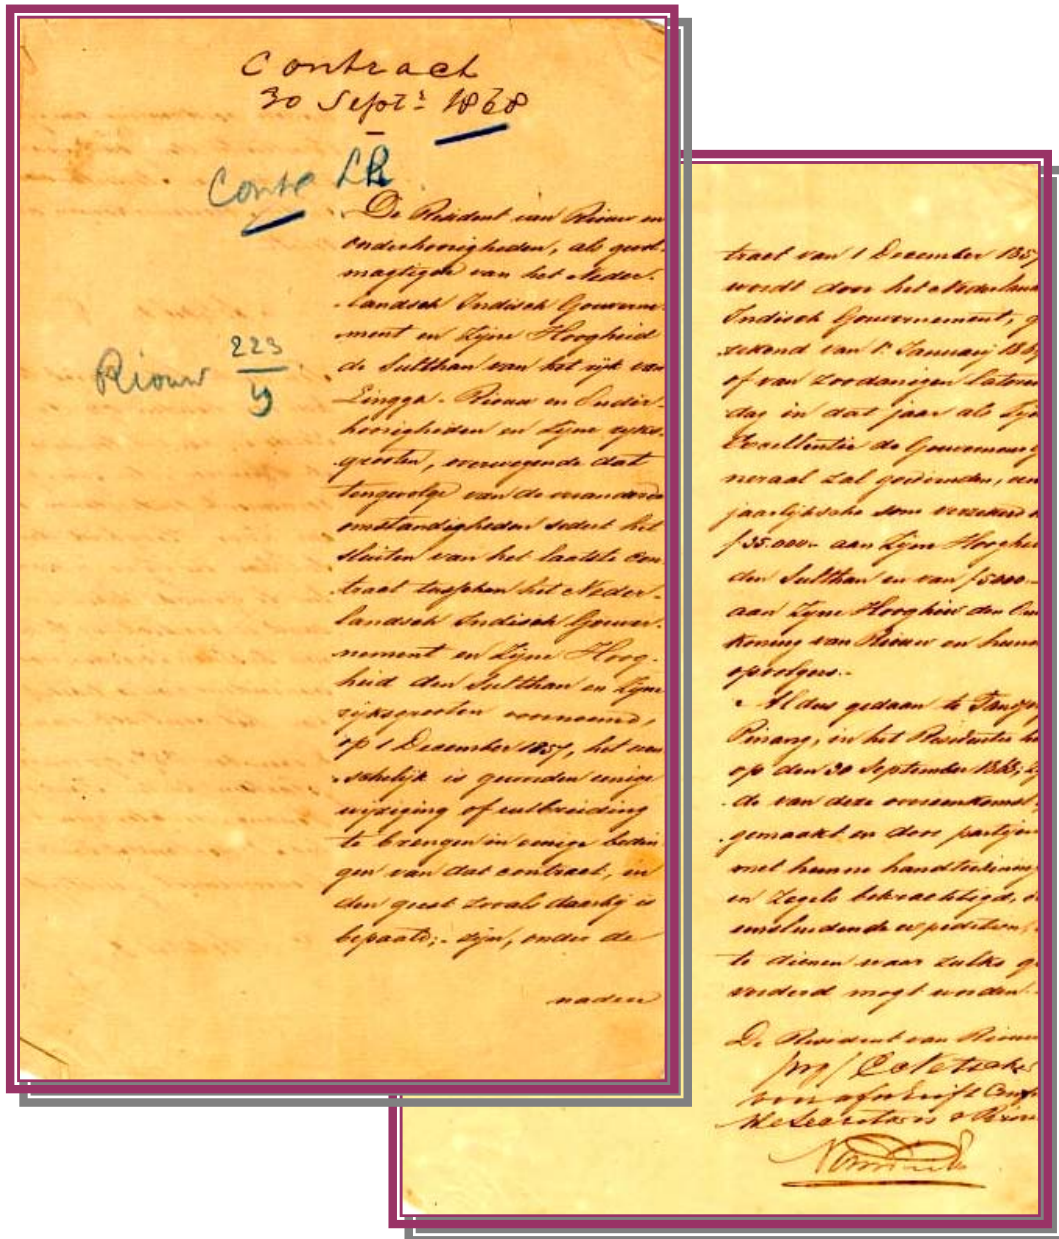 Contract
30 Septr 1868
Contr LR
De Resident van Riouw en
onderhoorigheden, als gevol-
magtigde van het Neder-
landsch Indisch Gouverne-
ment en Zijne Hoogheid
de Sulthan van het rijk van
Lingga-Riouw en Onder-
hoorigheden en Zijne rijks-
grooten, overwegende dat
tengevolge van de veranderde
omstandigheden sedert het
sluiten van het laatste con-
tract tusschen het Neder-
landsch Indisch Gouver-
nement en Zijne Hoog-
heid den Sulthan en Zijne
rijksgrooten voornoemd,
op 1 December 1857, het wen
schelijk is geworden eenige
wijziging of uitbreiding
te brengen in eenige bedin
gen van dat contract, in
den geest zooals daarbij is
bepaald; zijn, onder de
nader
Riouw 223
9
tract van 1 December 1857
wordt door het Nederland
Indisch Gouvernement, g
rekend van 1e Januarij 186
of van zoodanigen lateren
dag in dat jaar als Zijn
Excellentie de Gouverneur G
neraal zal goedvinden, een
jaarlijksche som verzekerd
f 35.000- aan Zijne Hooghei
den Sulthan en van f 5000-
aan Zijne Hoogheid den On
koning van Riouw en hunn
opvolgers.-
Aldus gedaan te Tanjo
Pinang, in het Residentie h
op den 30 September 1868;
de van deze overeenkomst
gemaakt en door partijen
met hunne handteekening
en Zegels bekrachtigd,
eensluidende expeditien,
te dienen waar zulks g
vorderd mogt worden.
De Resident van Riouw
w/g/ E Netscher
voor afschrift Conf
De Secretaris v Riou